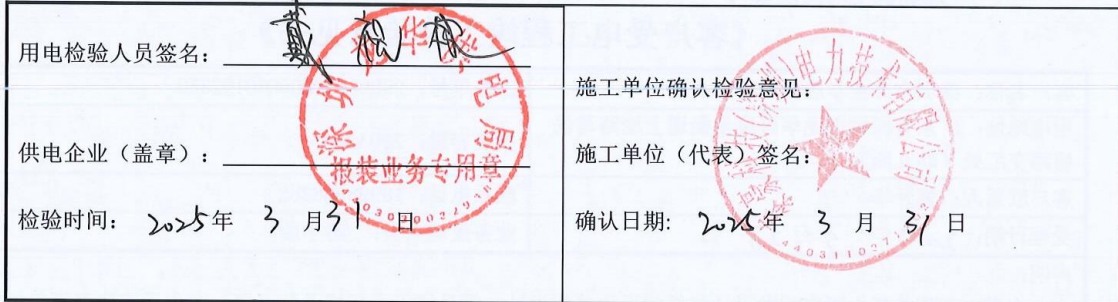 用电检验人员签名：
供电企业（盖章）：
检验时间： 2025年 3 月 31 日
深圳龙华供电局
报装业务专用章
施工单位确认检验意见：
施工单位（代表）签名：
确认日期: 2025年 3 月 31 日
电力技术有限公司